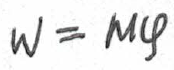 W = Mφ